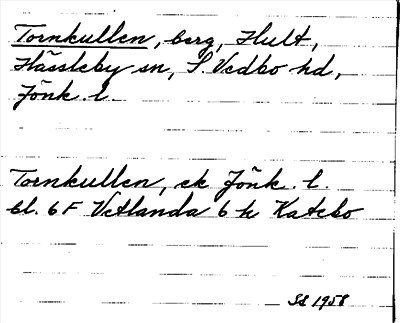 Tornkullen, berg, Hult,
Hässleby sn, S. Vedbo hd,
Jönk. l.
Tornkullen, ek Jönk. l.
bl. 6 F Vetlanda 6 h Katebo
SS 1958